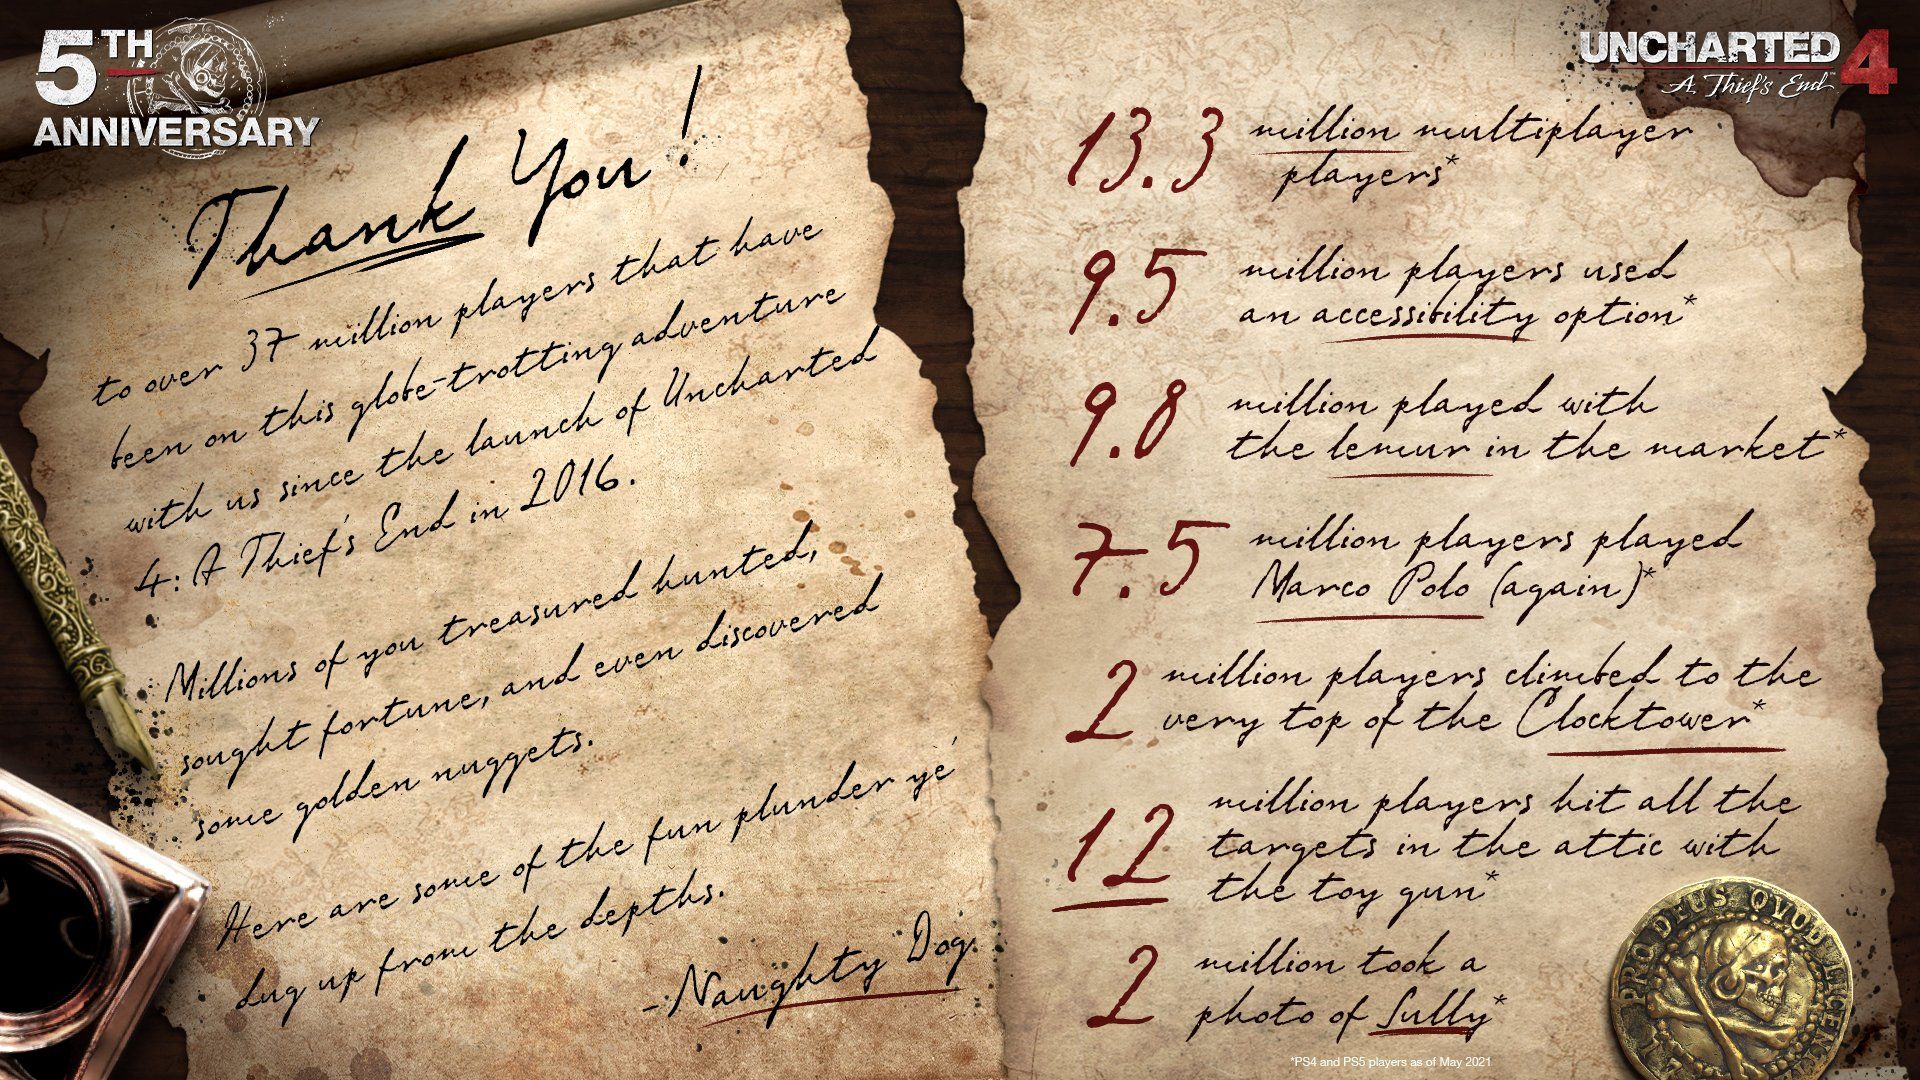 5TH
ANNIVERSARY
Thank You!
to over 37 million players that have
been on this globe-trotting adventure
with us since the launch of Uncharted
4: A Thief's End in 2016.
Millions of you treasured hunted,
sought fortune, and even discovered
some golden nuggets.
Here are some of the fun plunder ye'
dug up from the depths.
-Naughty Dog.
UNCHARTED 4
A Thief's End™
13.3 million multiplayer
players*
9.5 million players used
an accessibility option*
9.8 million played with
the lemur in the market*
7.5 million players played
Marco Polo (again)*
2 million players climbed to the
very top of the Clocktower*
12 million players hit all the
targets in the attic with
the toy gun*
2 million took a
photo of Sully*
*PS4 and PS5 players as of May 2021
PRO DEUS QVOD LICENTIA